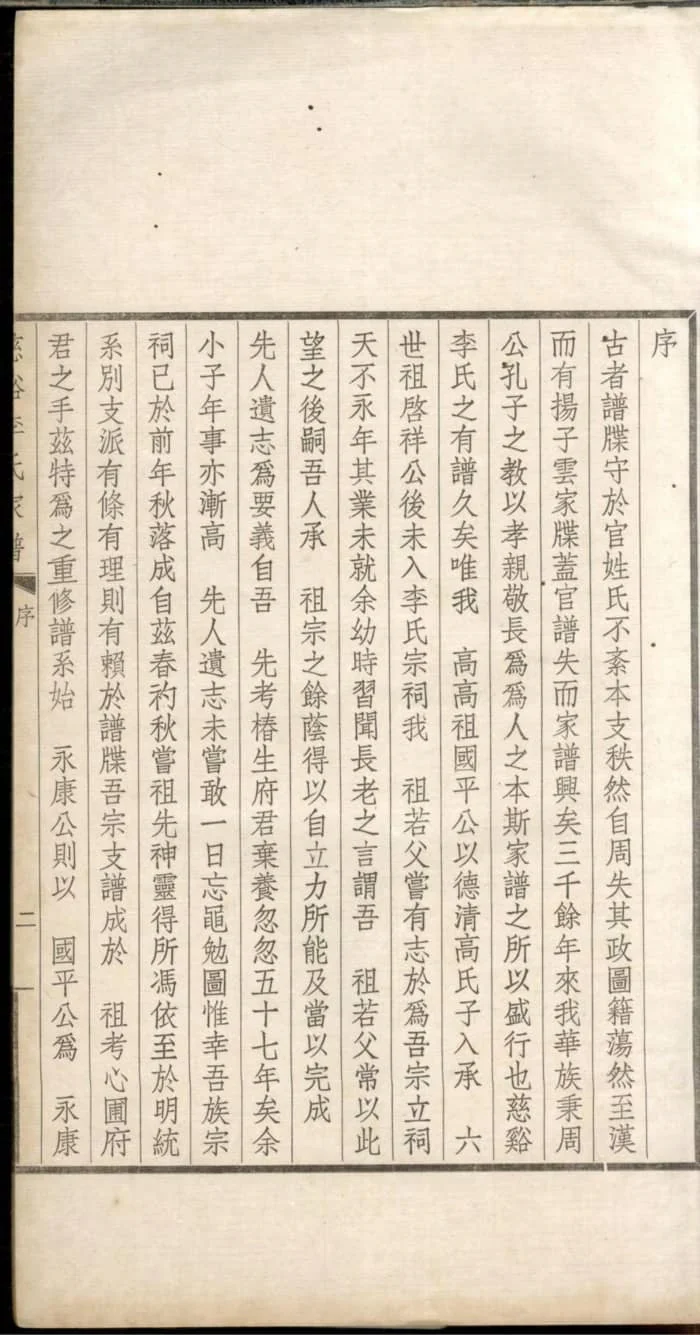 序
古者譜牒守於官姓氏不紊本支秩然自周失其政圖籍蕩然至漢
而有揚子雲家牒蓋官譜失而家譜興矣三千餘年來我華族秉周
公孔子之教以孝親敬長爲爲人之本斯家譜之所以盛行也慈谿
李氏之有譜久矣唯我　高高祖國平公以德清高氏子入承　六
世祖啓祥公後未入李氏宗祠我　祖若父嘗有志於爲吾宗立祠
天不永年其業未就余幼時習聞長老之言謂吾　祖若父常以此
望之後嗣吾人承　祖宗之餘蔭得以自立力所能及當以完成
先人遺志爲要義自吾　先考椿生府君棄養忽忽五十七年矣余
小子年事亦漸高　先人遺志未嘗敢一日忘黽勉圖惟幸吾族宗
祠已於前年秋落成自茲春礿秋嘗祖先神靈得所馮依至於明統
系別支派有條有理則有賴於譜牒吾宗支譜成於　祖考心圃府
君之手茲特爲之重修譜系始　永康公則以　國平公爲　永康
慈谿李氏家譜
序
二